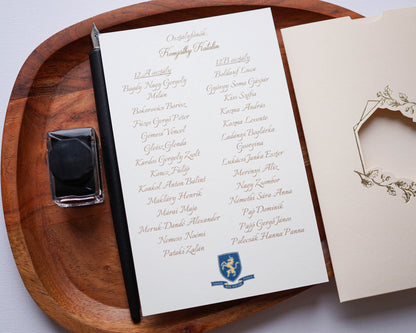 Osztályfőnök
Kempelhy Katalin
12.A osztály
Bagdy Nagy Gergely
Milán
Bokorovics Borisz
Füzes Gergő Péter
Gémesi Vencel
Glász Gellinda
Kardos Gergely Zsolt
Koncz Fülöp
Konkol Anton Bálint
Makláry Henrik
Marsi Maja
Mornik-Dandé Alexander
Nemess Noémi
Pataki Zalán
12.B osztály
Boldizsár Luca
György-Soma Gáspár
Kiss Szofia
Kozma András
Kozma Levente
Ladányi Boglárka
Georgina
Lukácsi Janka Eszter
Merényi Aliz
Nagy Zsombor
Némethi Sára Anna
Pap Dominik
Pajsi Gergő János
Polacsik Hanna Panna